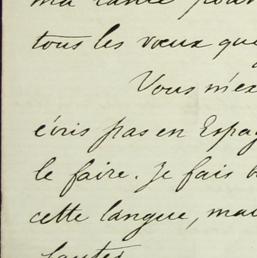 ma tante pour
tous les vœux que
Vous m'ex
écris pas en Espag
le faire. Je fais b
cette langue, mai
fautes